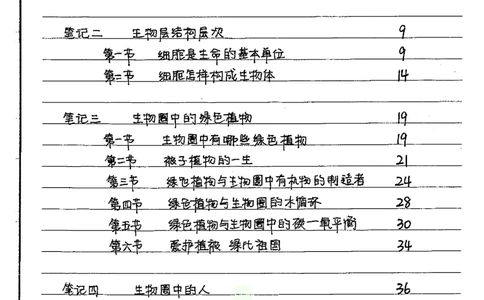 笔记二 生物层结构层次 9
第一节 细胞是生命的基本单位 9
第二节 细胞怎样构成生物体 14
笔记三 生物圈中的绿色植物 19
第一节 生物圈中有哪些绿色植物 19
第二节 被子植物的一生 21
第三节 绿色植物与生物圈中有机物的制造者 24
第四节 绿色植物与生物圈的水循环 28
第五节 绿色植物与生物圈中的碳一氧平衡 30
第六节 爱护植被 绿化祖国 34
笔记四 生物圈中的人 36